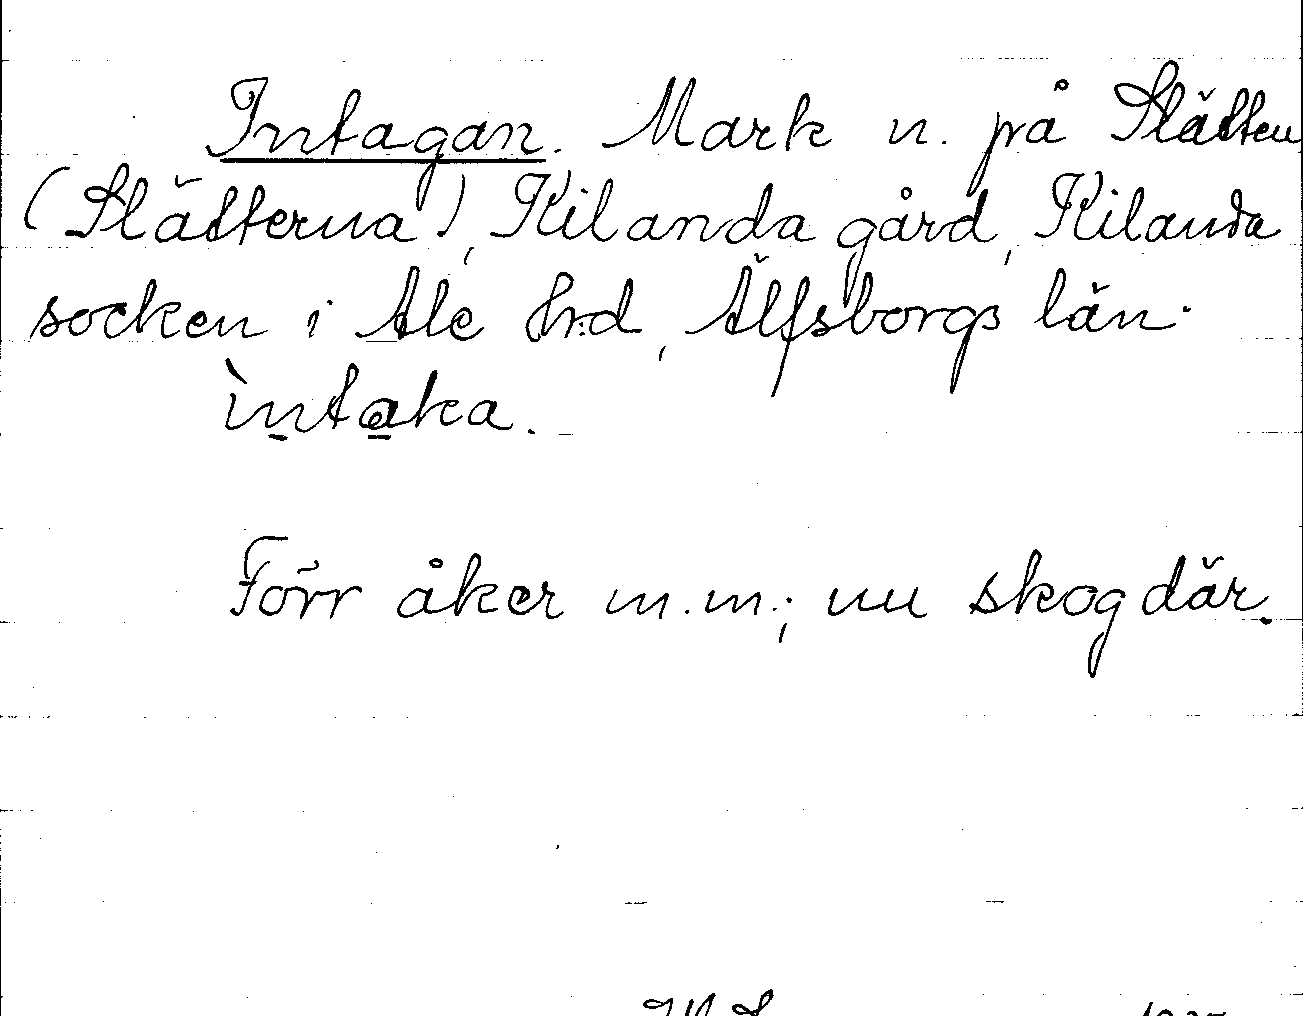 Intagan. Mark n. på Slätten
(Slätterna), Kilanda gård, Kilanda
socken i Ale Hrd, Älfsborgs län.
ìntaka.
Förr åker m.m.; nu skog där.